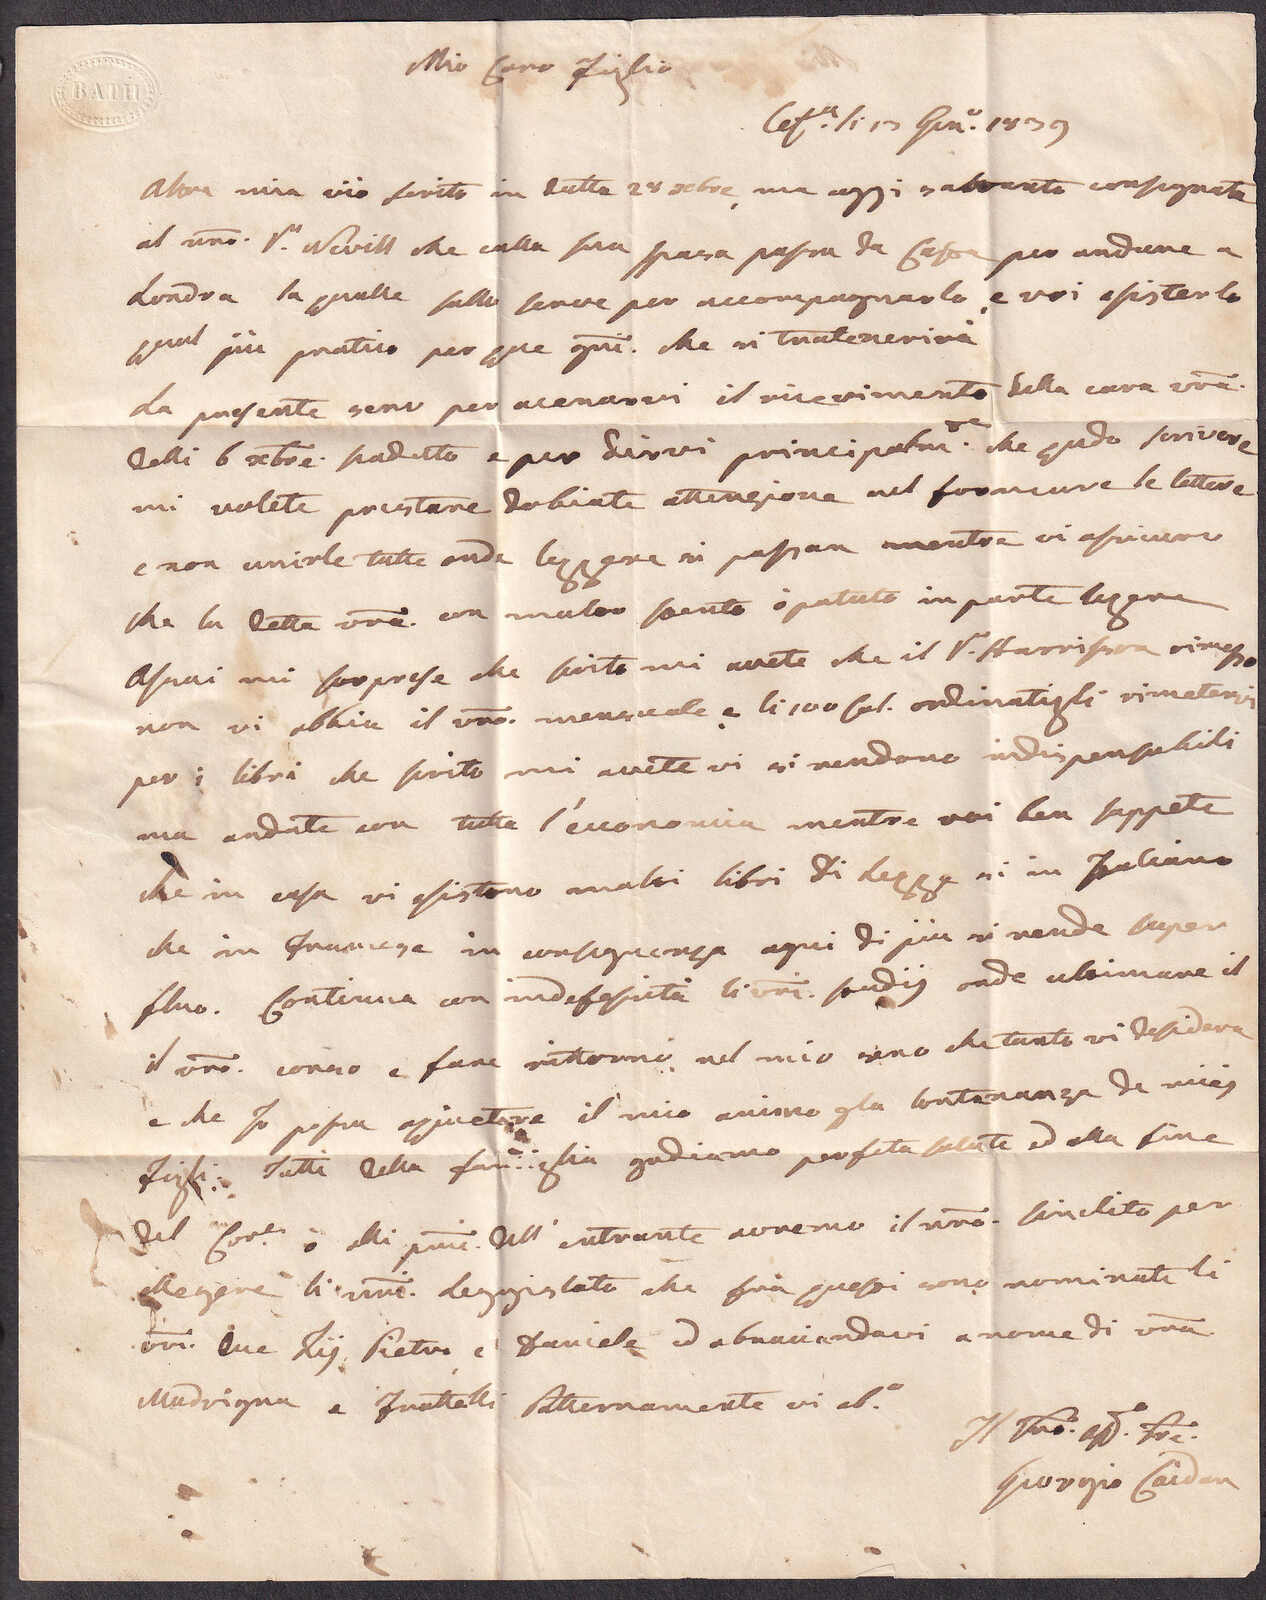 BATH
Mio Caro Figlio
Cef.a li 13 Gen.o 1839
Altra mia vio scrito in data 28 xbre, ma oggi consegnata
al Sr. Nevill che colla sua sposa passa da per andare a
Londra la qualle solto serve per accompagnarlo, e voi asisterlo
qual piu pratico per que che si tratenerirà
La presente serve per acenarvi il ricevimento della cara vra.
delli 6 xbre. sudetto e per dirvi principalm.te che quando scrivere
mi volete prestare dobiate attenzione nel formare le lettere
e non unirle tutte onde leggere si possan mentre vi asicuro
che la detta vra. con molto stento ò potuto in parte leggere
Asai mi sorprese che scrito mi avete che il Sr. Harrisson rimesso
non vi abbia il vro. mensuale e li 100 ordinatigli rimetervi
per i libri che scrito mi avete vi si rendono indispensabili
ma andate con tutta l'economia mentre voi ben sappete
che in casa vi esistono molti libri di Legge si in Italiano
che in Francese in conseguenza ogni di piu si rende super
fluo. Continua con indefessità li vri. studij onde ultimare il
il vro. corso e fare ritorno nel mio seno che tanto vi desidera
e che Io possa il mio animo lontananza de miei
Figli. Tutti della famiglia godiamo perfeta salute ed alla fine
del Cor.e ò alli pmi. dell' entrante avremo il nro. per
li Legislato che fra questi sono nominati li
vri. due Zij Pietro e Daniele ed abraciandovi a nome di vra
Madrigna e Fratelli Patternamente vi ab.o
Il Vro. aff.o Pre.
Giorgio